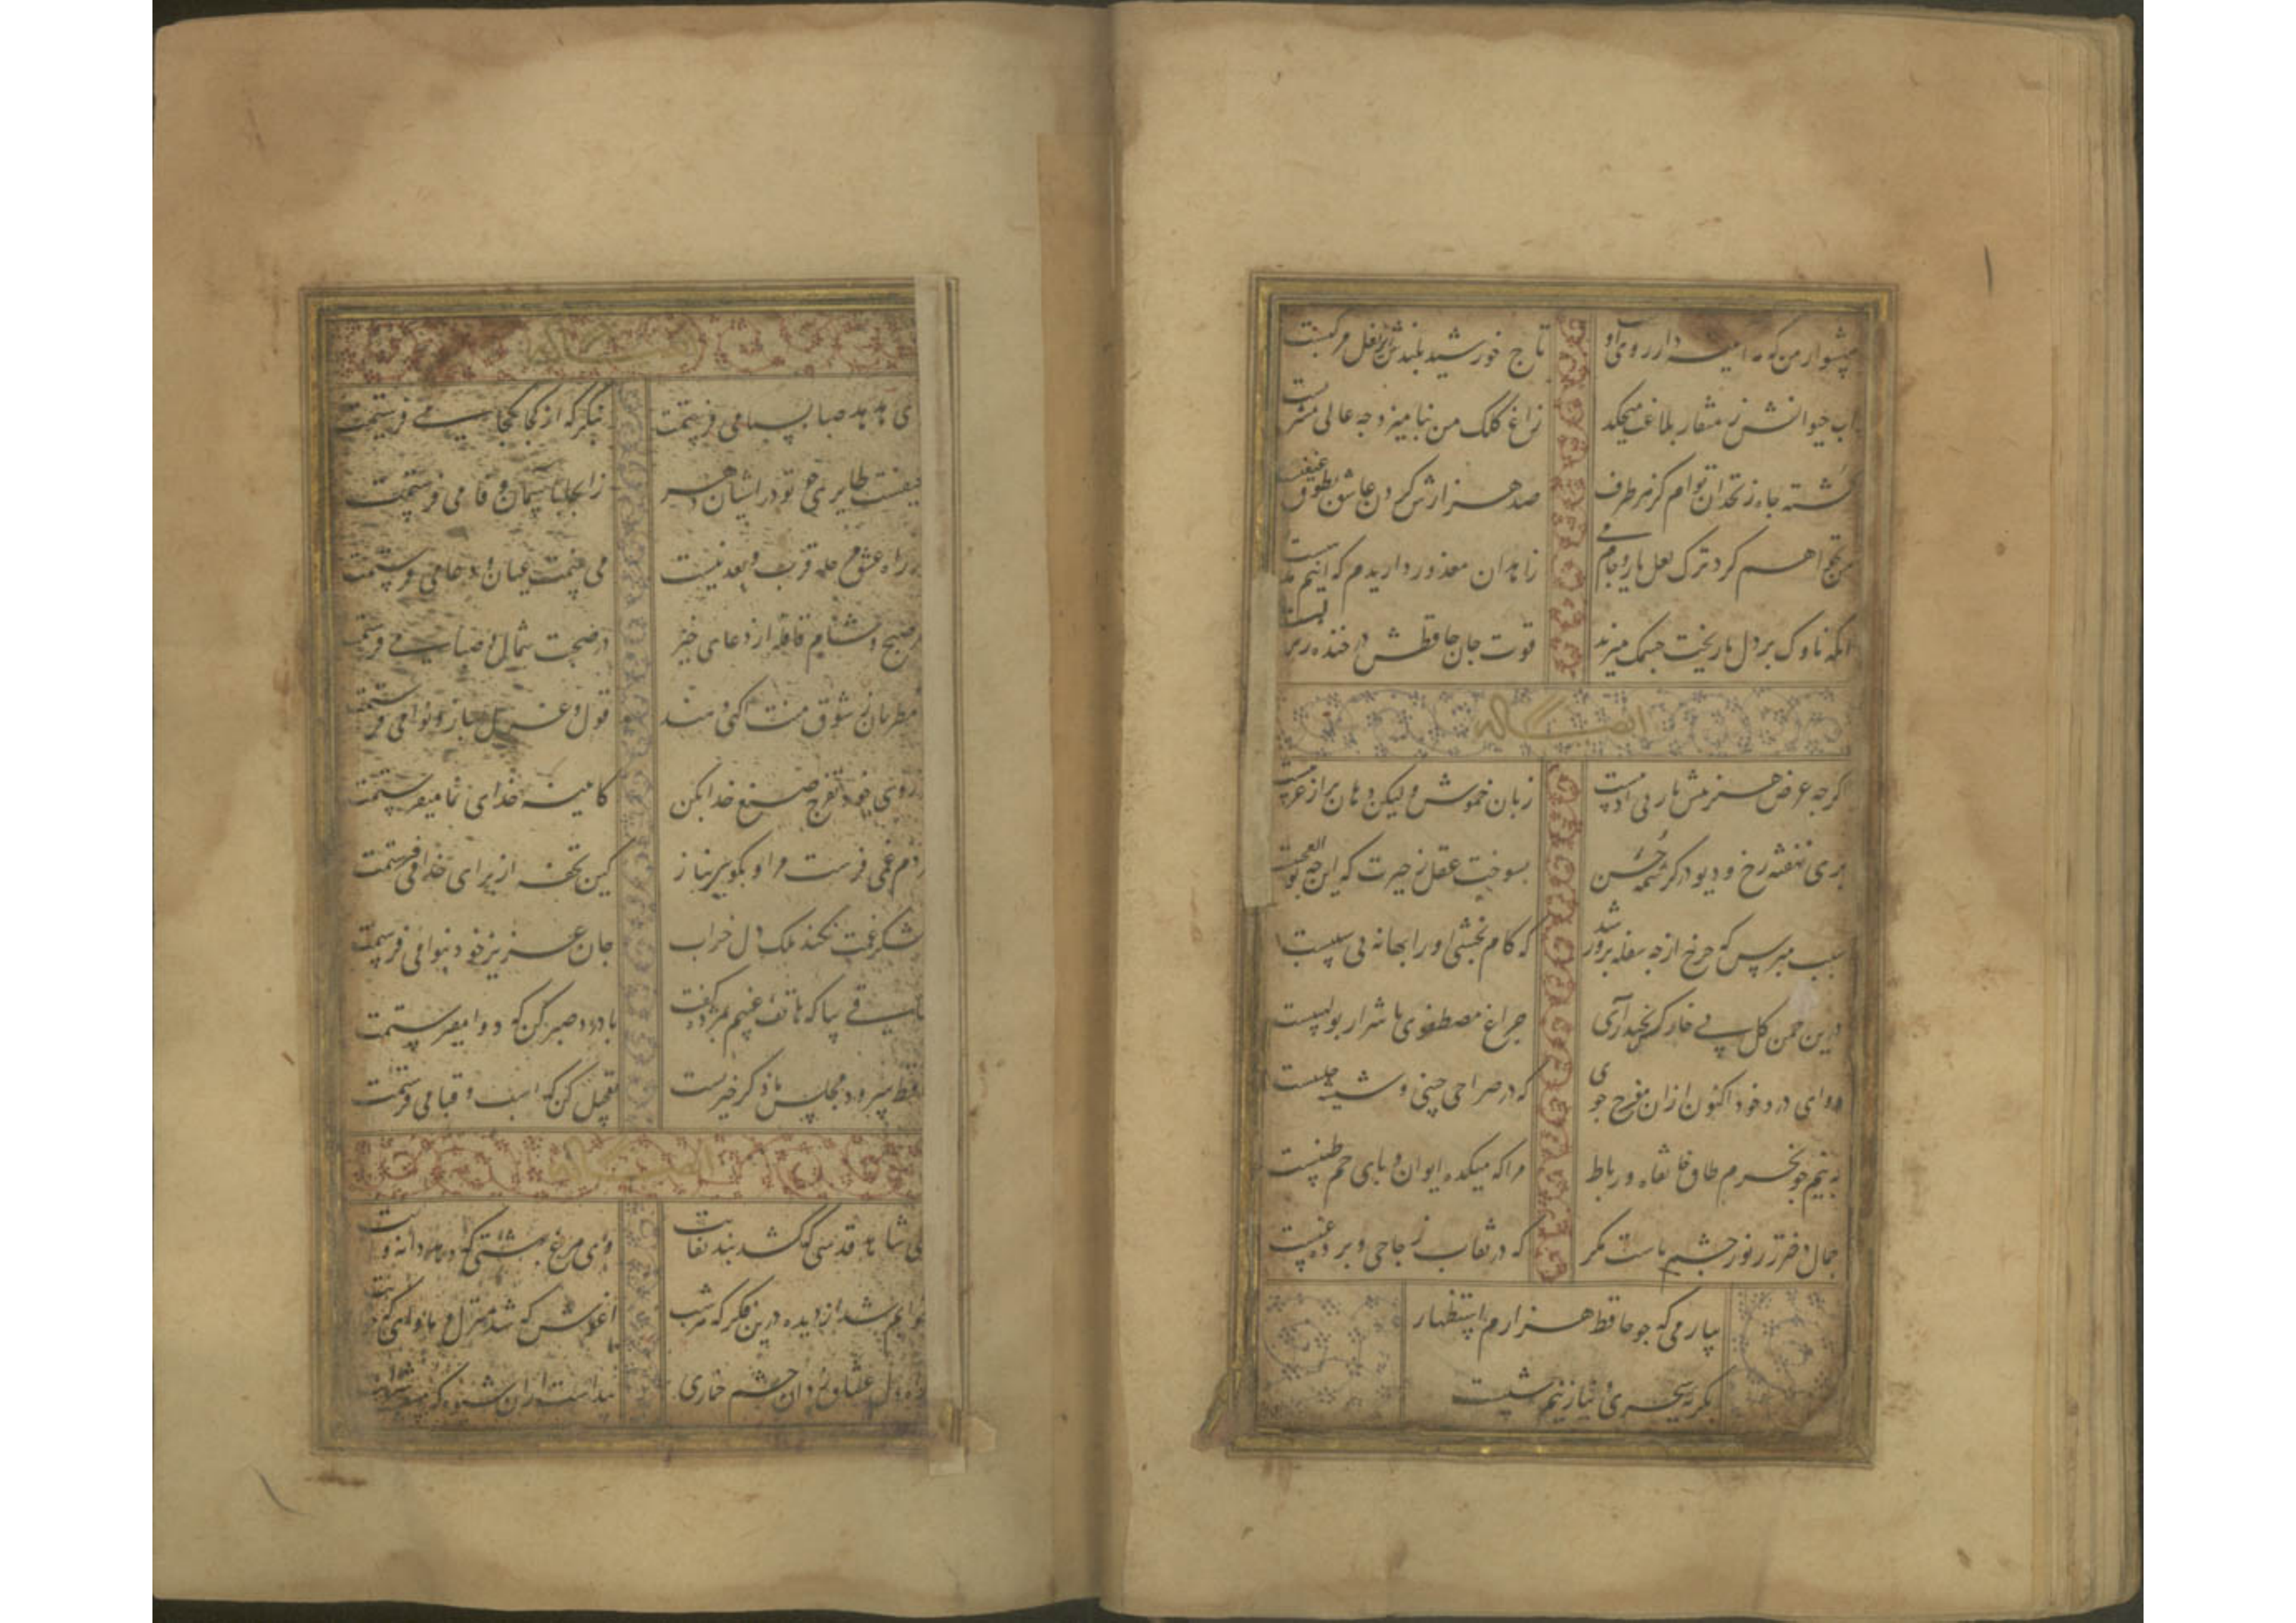 شهسوار من که مه آیینه دار روی او تاج خورشید بلندش نعل مرکبست
آب حیوانش ز منقار بلاغت میچکد زاغ کلک من بنامیزد چه عالی مشربست
کشته چاه زنخدان توام کز هر طرف صد هزارش کردن جان طوق غبغبست
من نخواهم کرد ترک لعل یار و جام می زاهدان معذور داریدم که اینم مذهبست
انکه ناوک بر دل ما زیر چشمک میزند قوت جان حافظش در خنده زیر لبست
ایضا له
کرچه عرض هنر پیش یار بی ادبیست زبان خموش ولیکن دهان پر از عربیست
پری نهفته رخ و دیو در کرشمه حسن بسوخت عقل ز حیرت که این چه بوالعجبیست
سبب مپرس که چرخ از چه سفله پرور شد که کام بخشی او را بهانه بی سببیست
درین چمن کل بی خار کس نچید آری چراغ مصطفوی با شرار بولهبیست
دوای درد خود اکنون از آن مفرح جوی که در صراحی چینی و شیشه حلبیست
به نیم جو نخرم طاق خانقاه و رباط مرا که میکده ایوان و پای خم طنبیست
جمال دختر رز نور چشم ماست مکر که در نقاب زجاجی و پرده عنبیست
بیار می که چو حافظ هزارم استظهار
بکریه سحری و نیاز نیم شبیست
ایضا له
ای هدهد صبا بسبا می فرستمت بنکر که از کجا بکجا می فرستمت
حیفست طایری چو تو در زانجا باشیان وفا می فرستمت
در راه عشق مرحله قرب و بعد نیست می بینمت عیان و دعا می فرستمت
هر صبح و شام قافله از دعای خیر در صحبت شمال و صبا می فرستمت
مطربان ز شوق منت آکهی دهند قول و غزل بساز و نوا می فرستمت
در روی خود تفرج صنع خدا بکن کایینه خدای نما میفرستمت
هر دم غمی فرست مرا و بکو بناز کین تحفه از برای خدا می فرستمت
لشکر غمت نکند ملک دل خراب جان عزیز خود بنوا می فرستمت
ساقی بیا که هاتف غیبم بمژده کفت با درد صبر کن که دوا میفرستمت
حافظ سرود مجلس ما ذکر خیر تست تعجیل کن که اسب و قبا می فرستمت
ایضا له
ای شاهد قدسی که کشد بند نقابت وای مرغ بهشتی که دهد دانه و آبت
خوابم بشد از دیده درین فکر که هر شب آغوش که شد منزل و ماوا که
راه دل عشاق زد آن چشم خماری پیداست ازین شیوه که مستست شرابت